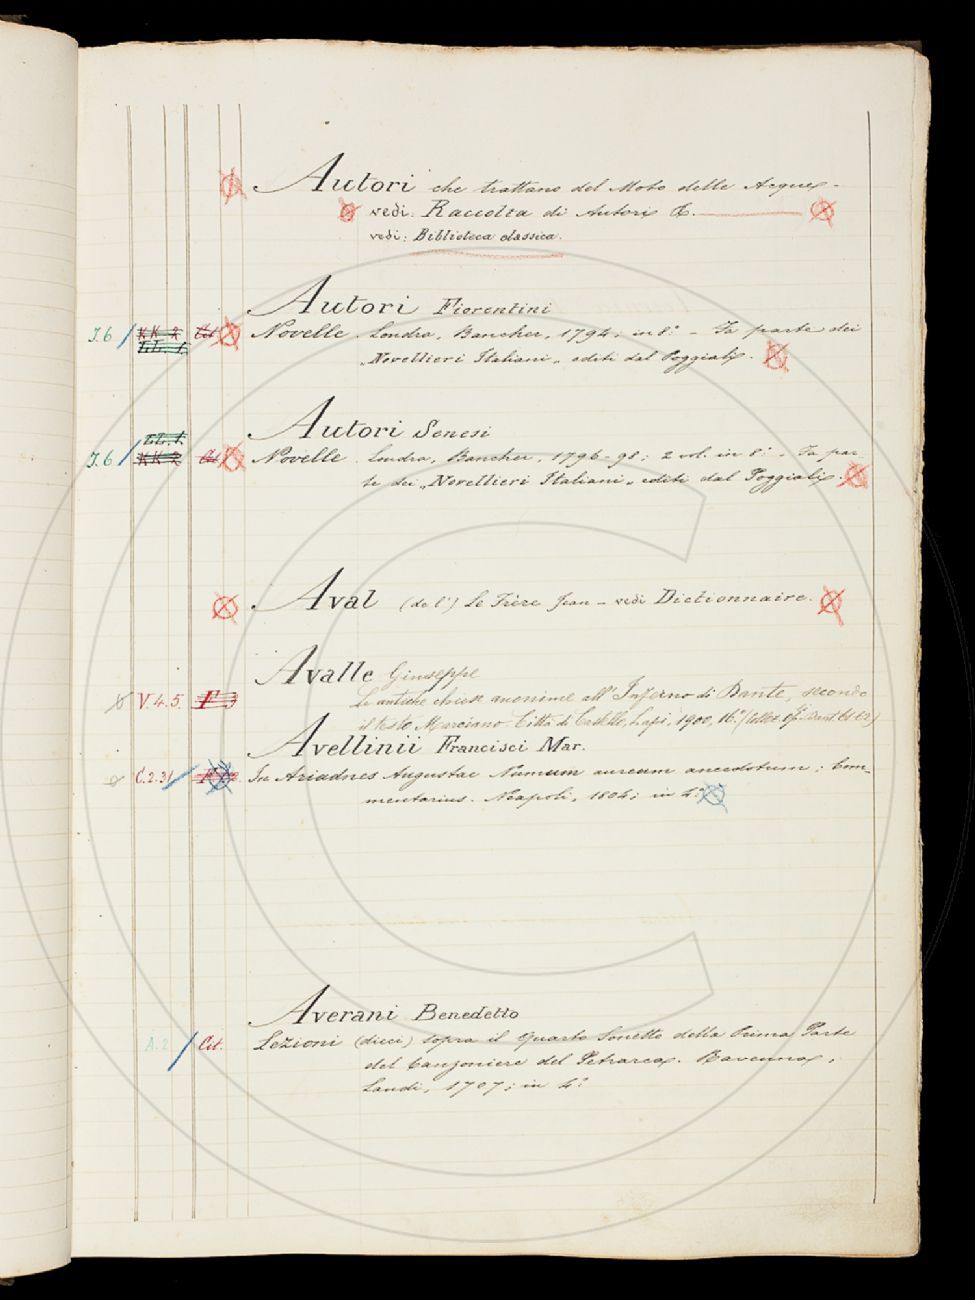 Autori che trattano del Moto delle Acque -
vedi: Raccolta di Autori &.
vedi: Biblioteca classica.
Autori Fiorentini
I.6 K.K. 2 Cit Novelle. Londra, Bancher, 1794; in 8.º - Fa parte dei
LL. 1.
„Novellieri Italiani„ editi dal Poggiali.
Autori Senesi
LL. 1.
I.6 K.K. 2 Cit Novelle. Londra, Bancher, 1796-98; 2 vol. in 8.º - Fa par-
te dei „Novellieri Italiani„ editi dal Poggiali.
Aval (de l') Le Frère Jean - vedi Dictionnaire.
Avalle Giuseppe
V.4.5. F Le antiche chiose anonime all'Inferno di Dante, secondo
il testo Marciano. Città di Castello, Lapi, 1900, 16.º (Collez. Op. Dant. 61-62)
Avellinii Francisci Mar.
C.2.31 In Ariadnes Augustae Numum aureum anecdotum; Com-
mentarius. Neapoli, 1804; in 4.º
Averani Benedetto
A.2 Cit. Lezioni (dieci) sopra il Quarto Sonetto della Prima Parte
del Canzoniere del Petrarca. Ravenna,
Landi, 1707; in 4.º